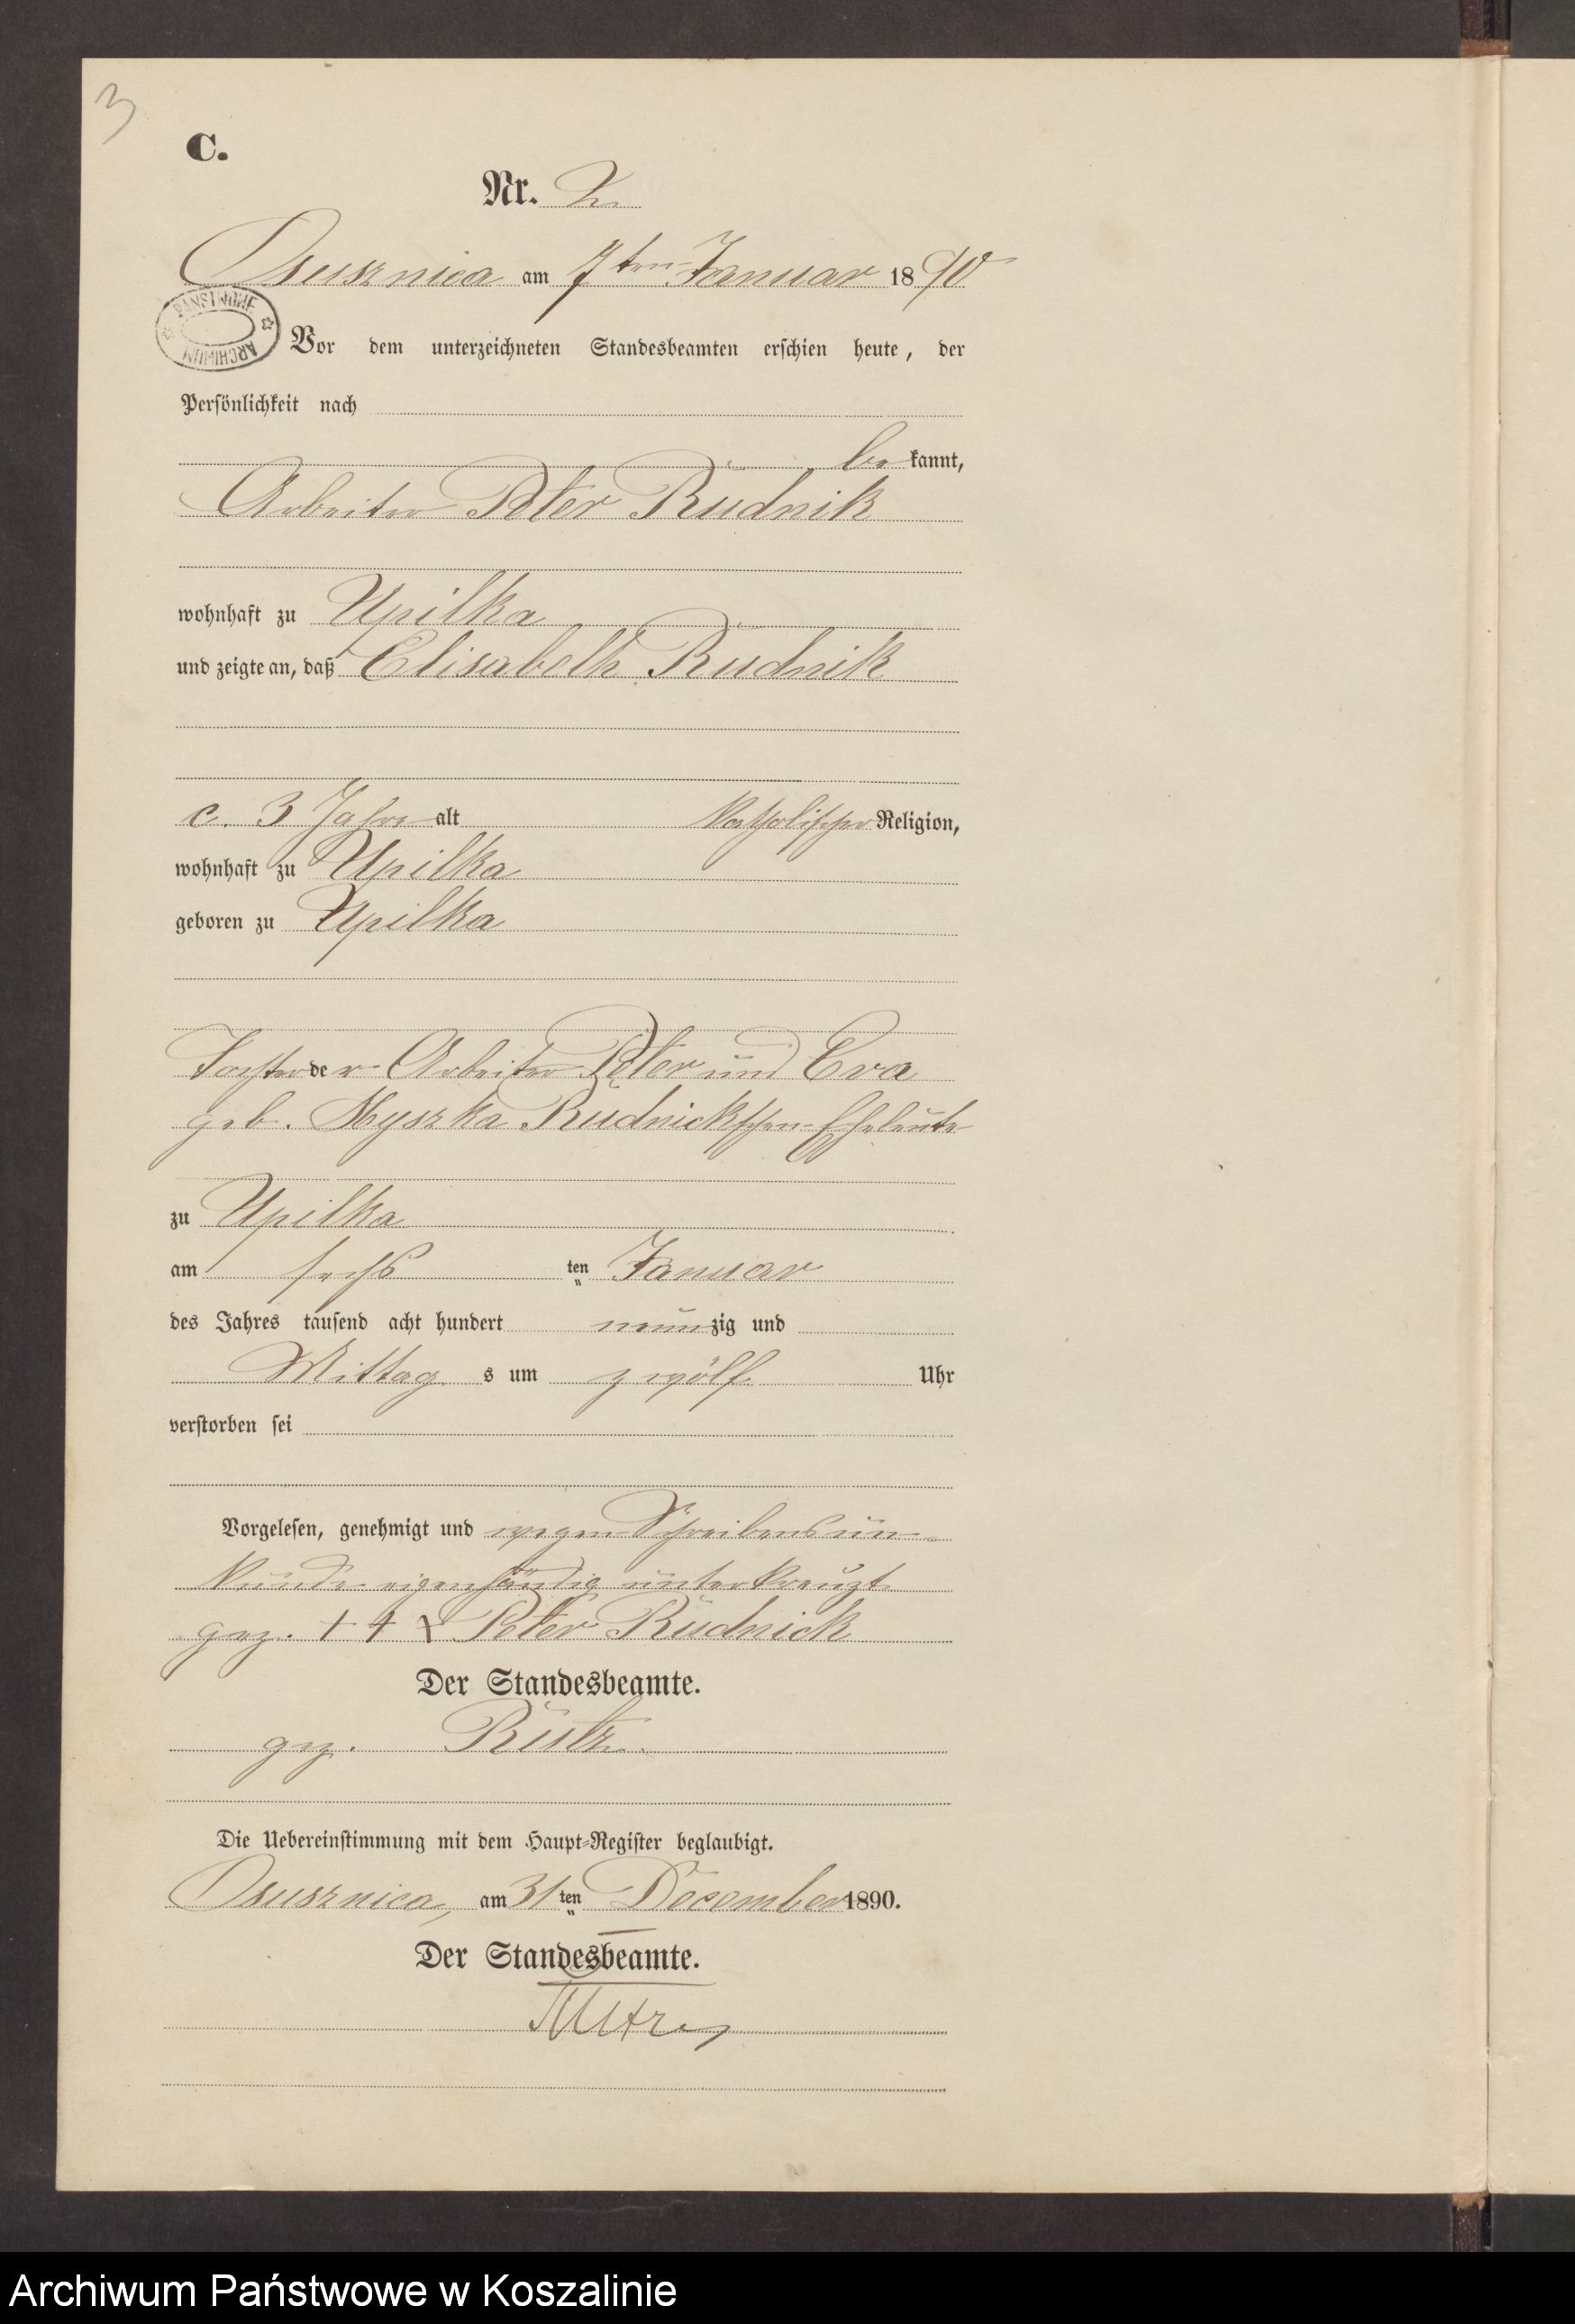 3
C.
Nr. 2.
Osusznica am 7ten Januar 1890
PAŃSTWOWE ARCHIWUM
Vor dem unterzeichneten Standesbeamten erschien heute, der
Persönlichkeit nach
be kannt,
Arbeiter Peter Rudnik
wohnhaft zu Upilka
und zeigte an, daß Elisabeth Rudnik
c. 3 Jahre alt katholischer Religion,
wohnhaft zu Upilka
geboren zu Upilka
Tochter der Arbeiter Peter und Eva
geb. Myszka Rudnickschen Eheleute
zu Upilka
am sechs ten Januar
des Jahres tausend acht hundert neunzig und
Mittag s um zwölf Uhr
verstorben sei
Vorgelesen, genehmigt und wegen Schreibensun-
kunde eigenhändig unterkreuzt
gez. + + + Peter Rudnick
Der Standesbeamte.
gez. Rutz.
Die Uebereinstimmung mit dem Haupt-Register beglaubigt.
Osusznica, am 31 ten December 1890.
Der Standesbeamte.
Rutz
Archiwum Państwowe w Koszalinie